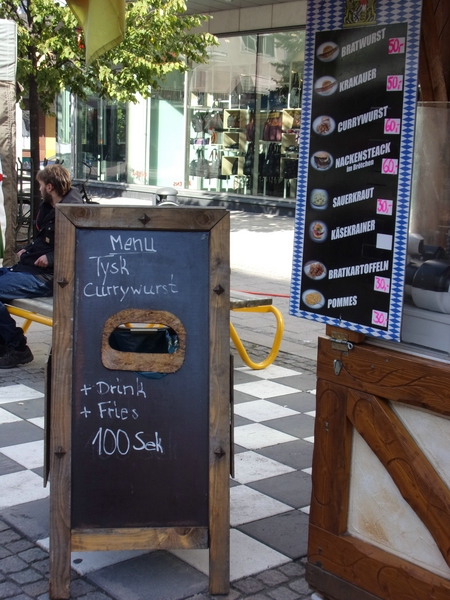 Menu
Tysk
Currywurst
+ Drink
+ Fries
100 Sek
BRATWURST 50:-
KRAKAUER 50:-
CURRYWURST 60:-
NACKENSTEACK 60:-
im Brötchen
SAUERKRAUT 30:-
KÄSEKRAINER
BRATKARTOFFELN 30:-
POMMES 30:-